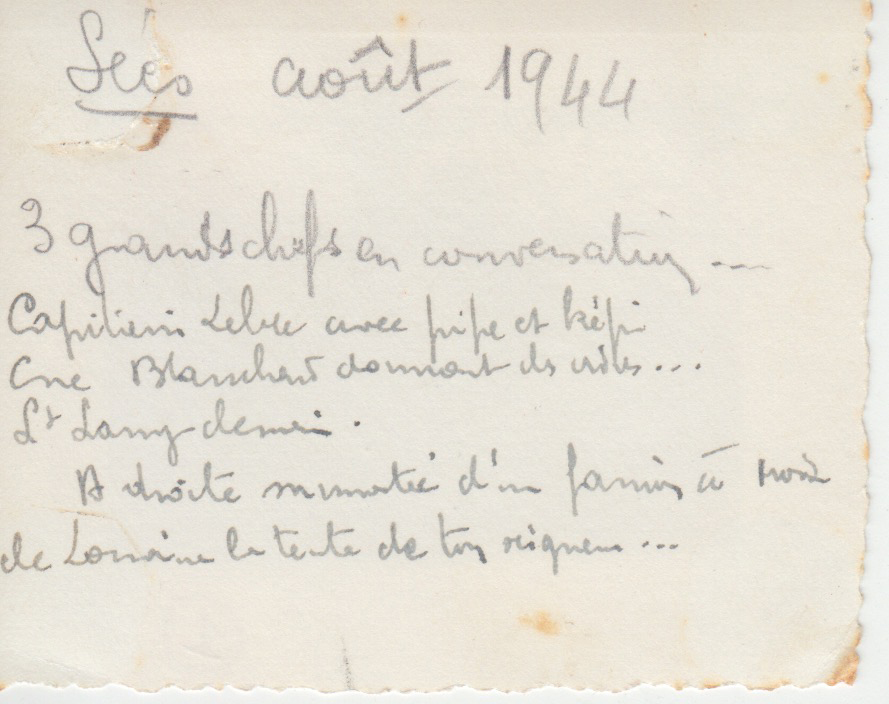 Sées août 1944
3 grands chefs en conversation ...
Capitaine Lebre avec pipe et képi
Cne Blanchard donnant des ordres ...
Lt Lamy
A droite surmontée d'un fanion à croix
de Lorraine la tente de ton seigneur ...